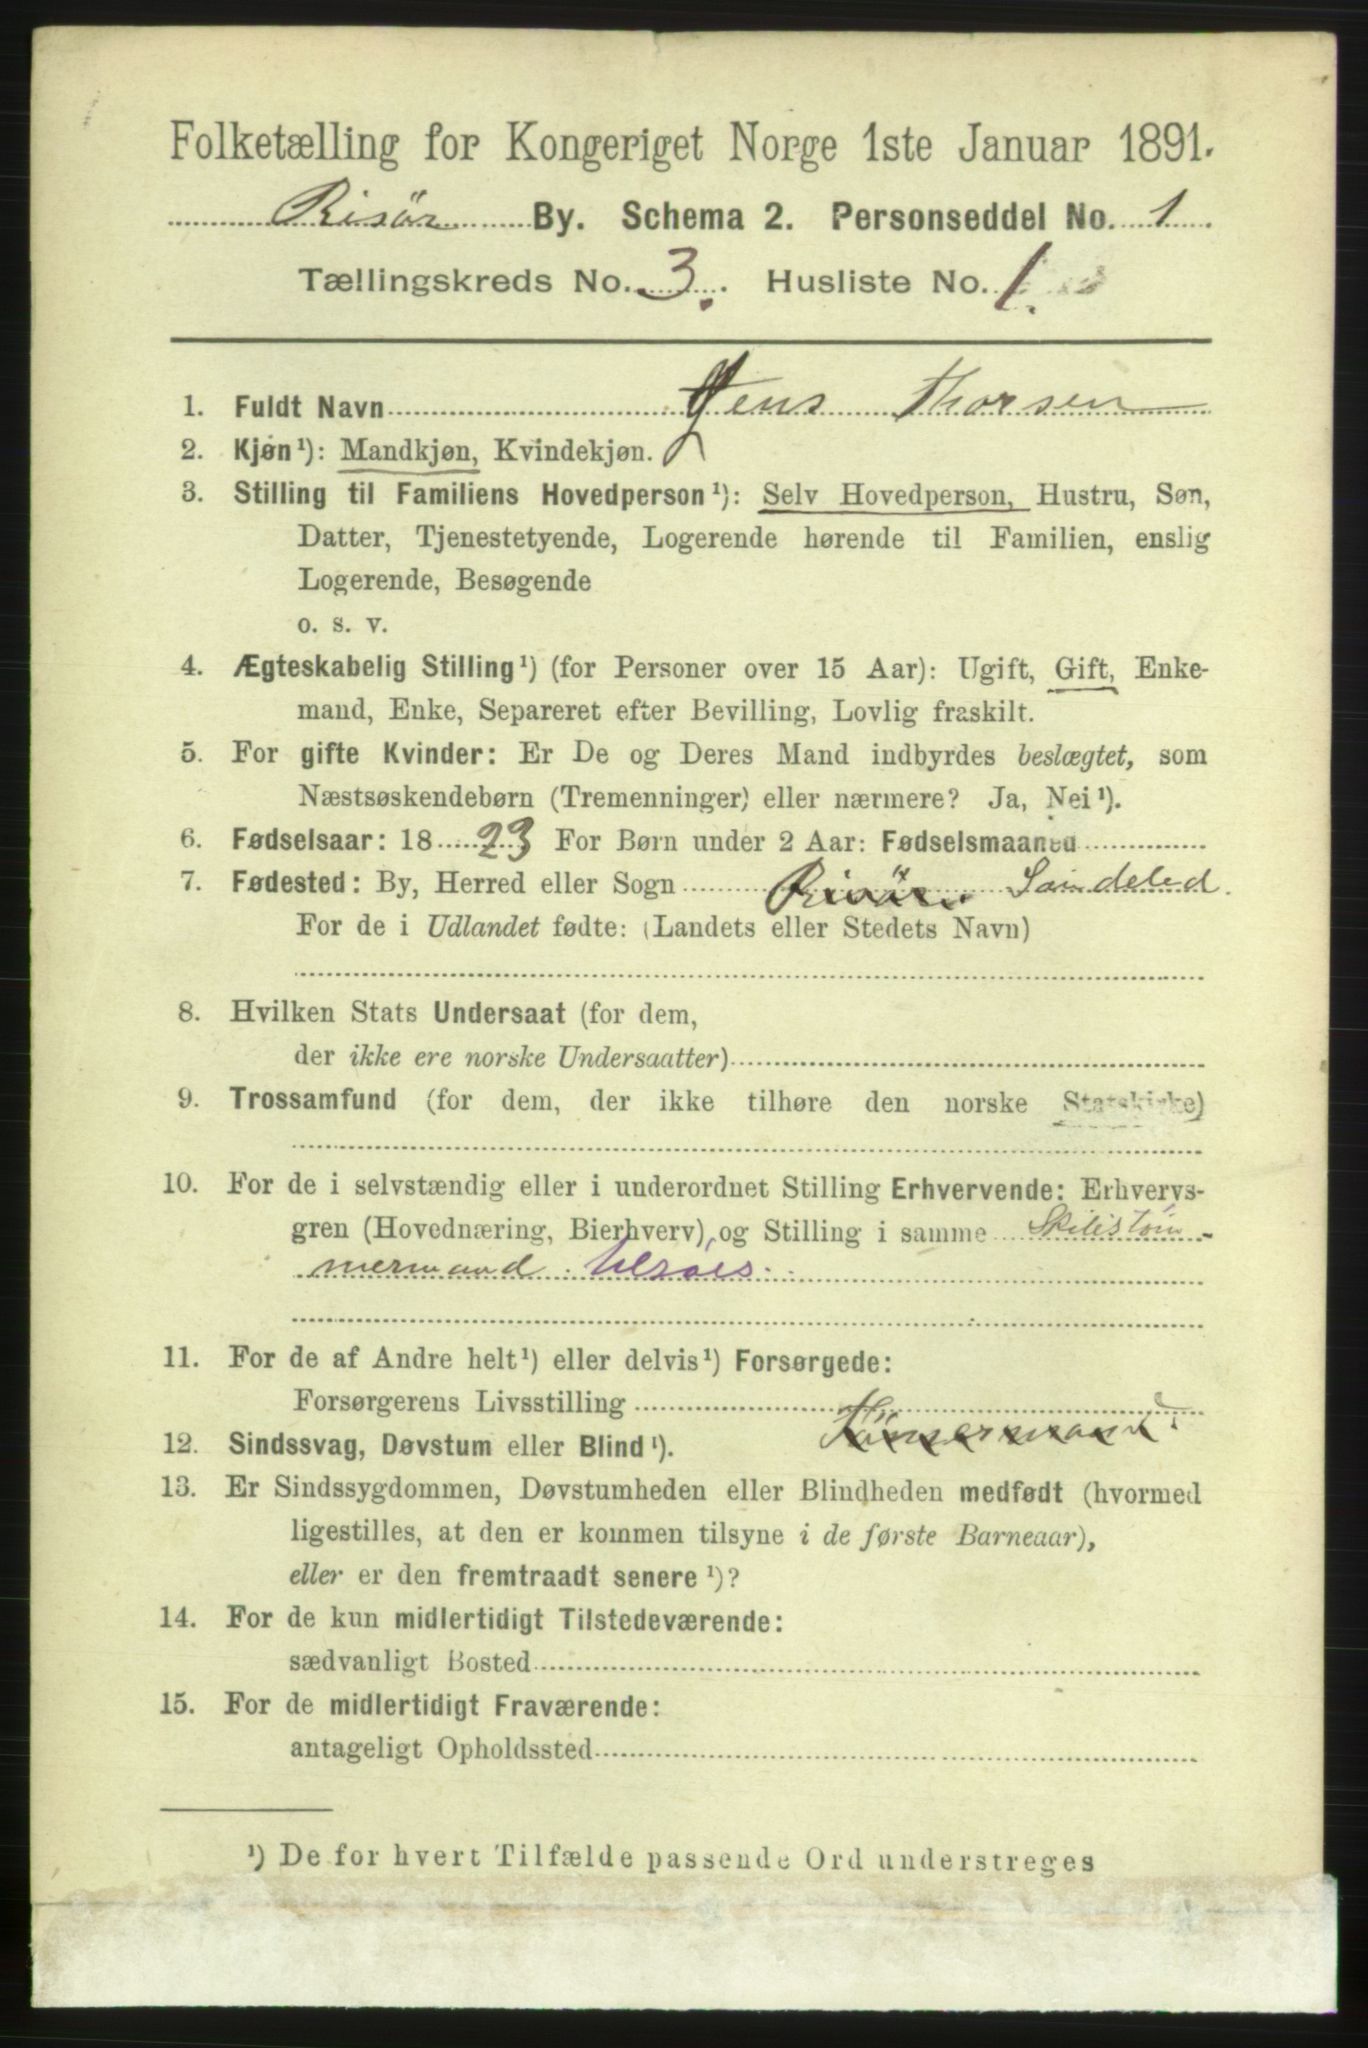 Folketælling for Kongeriget Norge 1ste Januar 1891.
Risör By. Schema 2. Personseddel No. 1
Tællingskreds No. 3. Husliste No. 1.
1. Fuldt Navn Jens Thorsen
2. Kjøn¹): Mandkjøn, Kvindekjøn.
3. Stilling til Familiens Hovedperson¹): Selv Hovedperson, Hustru, Søn,
Datter, Tjenestetyende, Logerende hørende til Familien, enslig
Logerende, Besøgende
o. s. v.
4. Ægteskabelig Stilling¹) (for Personer over 15 Aar): Ugift, Gift, Enke-
mand, Enke, Separeret efter Bevilling, Lovlig fraskilt.
5. For gifte Kvinder: Er De og Deres Mand indbyrdes beslægtet, som
Næstsøskendebørn (Tremenninger) eller nærmere? Ja, Nei¹).
6. Fødselsaar: 1823 For Børn under 2 Aar: Fødselsmaaned
7. Fødested: By, Herred eller Sogn Risör Søndeled.
For de i Udlandet fødte: (Landets eller Stedets Navn)
8. Hvilken Stats Undersaat (for dem,
der ikke ere norske Undersaatter)
9. Trossamfund (for dem, der ikke tilhøre den norske Statskirke)
10. For de i selvstændig eller i underordnet Stilling Erhvervende: Erhvervs-
gren (Hovednæring, Bierhverv) og Stilling i samme Skibstöm-
mermand
11. For de af Andre helt¹) eller delvis¹) Forsørgede:
Forsørgerens Livsstilling
Tömmermand.
12. Sindssvag, Døvstum eller Blind¹).
13. Er Sindssygdommen, Døvstumheden eller Blindheden medfødt (hvormed
ligestilles, at den er kommen tilsyne i de første Barneaar),
eller er den fremtraadt senere¹)?
14. For de kun midlertidigt Tilstedeværende:
sædvanligt Bosted
15. For de midlertidigt Fraværende:
antageligt Opholdssted
¹) De for hvert Tilfælde passende Ord understreges